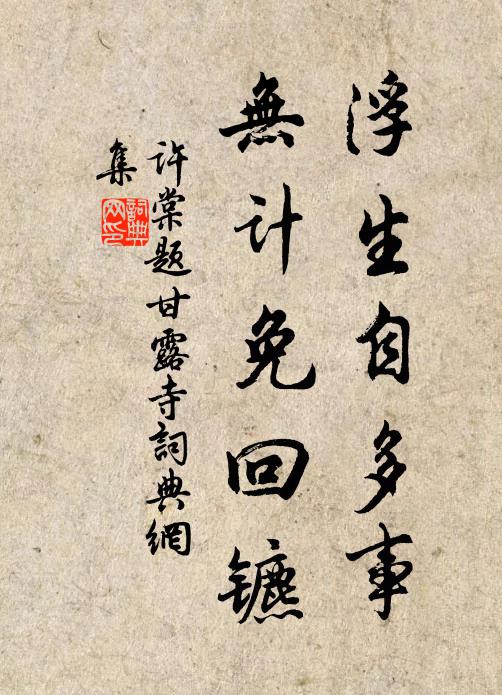 浮生自多事
無计免回镳
許棠題甘露寺詞典網
集
詞典网印